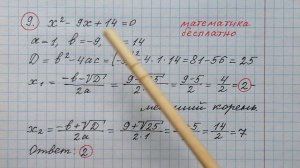 9. x² - 9x + 14 = 0
математика
бесплатно
a = 1, b = -9, = 14
D = b² - 4ac = (- ² - 4·1·14 = 81 - 56 = 25
x₁ = (-b - √D)/2a = = (9 - 5)/2 = 4/2 = 2
корень
x₂ = (-b + √D)/2a = (9 + √25)/(2·1) = 5 = 14/2 = 7
Ответ: 2